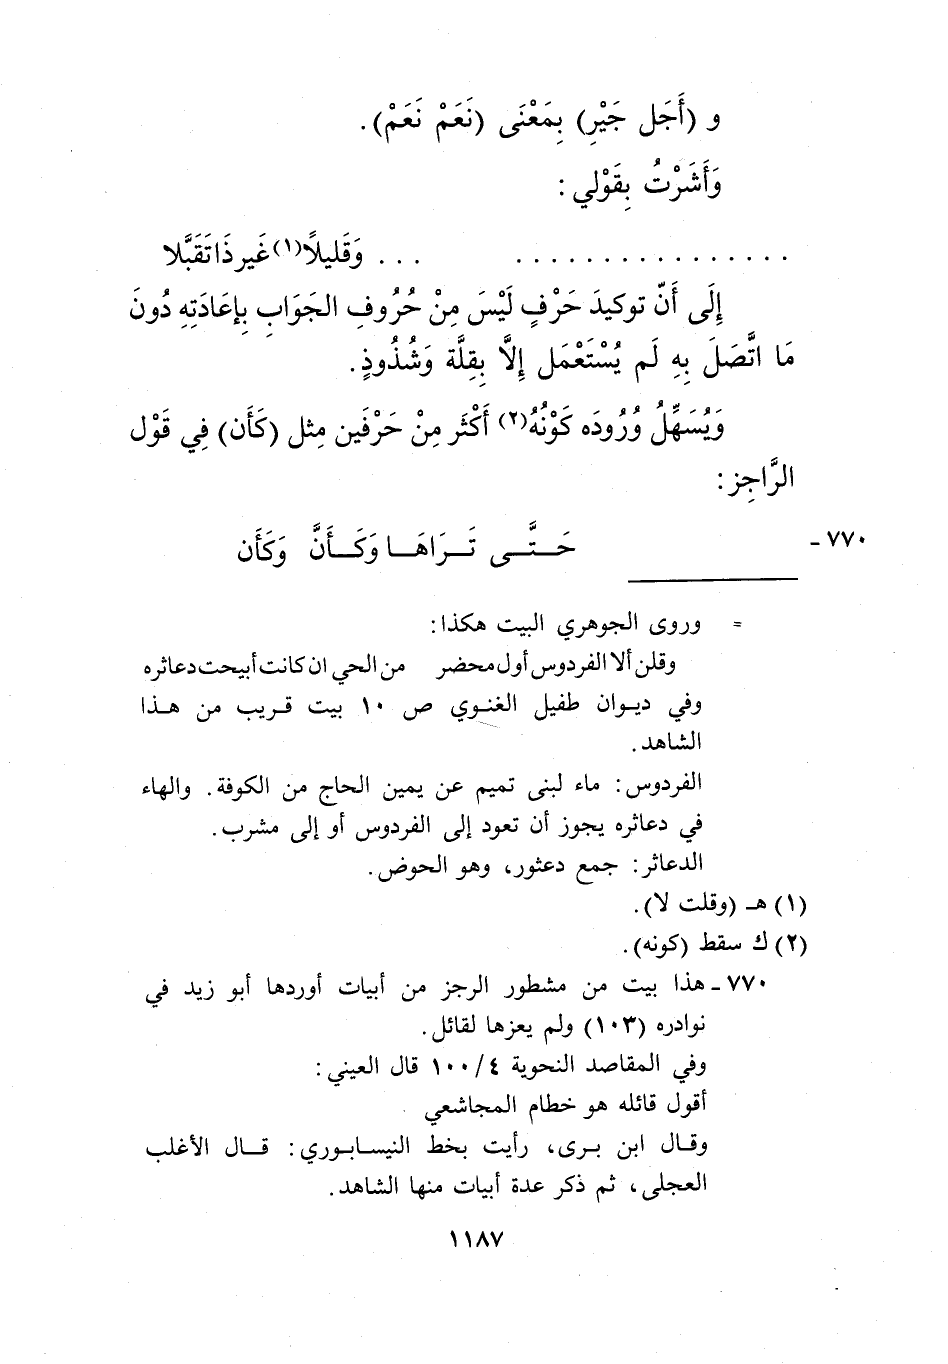 و (أَجَل جَيْرِ) بِمَعْنَى (نَعَمْ نَعَمْ).
وَأَشَرْتُ بِقَوْلي:
. . . . . . . . . . . . . . . .      . . . وَقَليلاً(١) غَير ذَا تَقَبَّلا
إِلَى أَنّ توكيدَ حَرْفٍ لَيْسَ مِنْ حُرُوفِ الجَوَابِ بِإعَادَتِهِ دُونَ
مَا اتَّصَلَ بِهِ لَم يُسْتَعْمَل إِلاَّ بِقِلَّة وَشُذُوذٍ.
وَيُسَهِّلُ وُرُودَه كَوْنُهُ(٢) أَكْثَر مِنْ حَرْفَين مِثل (كَأَن) فِي قَوْل
الرَّاجِز:
٧٧٠ - حَـتَّـى تَـرَاهَـا وَكَـأَنَّ وَكَأَن
= وروى الجوهري البيت هكذا:
وقلن ألا الفردوس أول محضر    من الحي ان كانت أبيحت دعاثره
وفي ديوان طفيل الغنوي ص ١٠ بيت قريب من هذا
الشاهد.
الفردوس: ماء لبنى تميم عن يمين الحاج من الكوفة. والهاء
في دعاثره يجوز أن تعود إلى الفردوس أو إلى مشرب.
الدعاثر: جمع دعثور، وهو الحوض.
(١) هـ (وقلت لا).
(٢) ك سقط (كونه).
٧٧٠ - هذا بيت من مشطور الرجز من أبيات أوردها أبو زيد في
نوادره (١٠٣) ولم يعزها لقائل.
وفي المقاصد النحوية ٤/ ١٠٠ قال العيني:
أقول قائله هو خطام المجاشعي
وقال ابن برى، رأيت بخط النيسابوري: قال الأغلب
العجلى، ثم ذكر عدة أبيات منها الشاهد.
١١٨٧